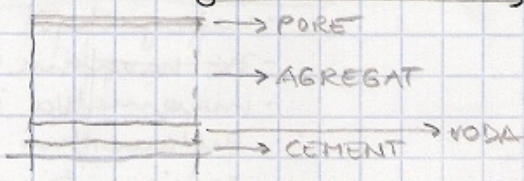 PORE
AGREGAT
VODA
CEMENT